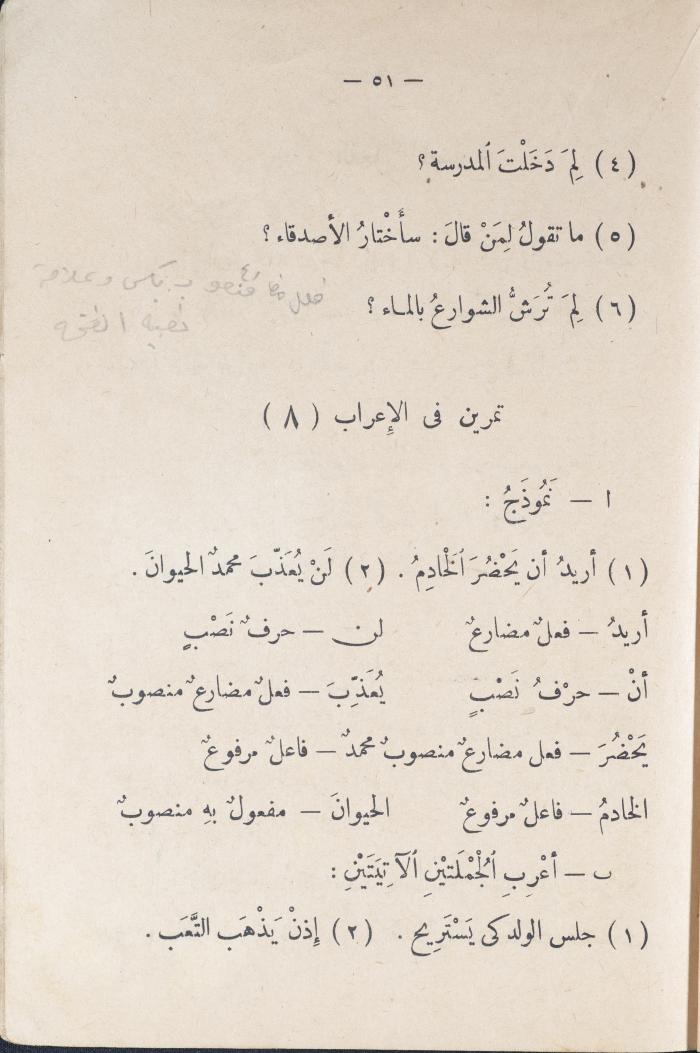 — ٥١ —
(٤) لِمَ دَخَلْتَ ٱلمدرسة؟
(٥) ما تقولُ لِمَنْ قالَ : سأَخْتارُ الأصدقاء ؟
(٦) لِمَ تُرَشُّ الشوارعُ بالماء ؟
بكى وعلامة
نصبه الفتحة
تمرين فى الإعراب (٨)
ا — نَمُوذَجُ :
(١) أريدُ أن يَحْضُرَ ٱلخْادِمُ . (٢) لَنْ يُعَذّبَ محمدٌ الحيوانَ .
أريدُ — فعلٌ مضارعٌ لن — حرفُ نَصْبٍ
أنْ — حرْفُ نَصْبٍ يُعَذِّبَ — فعلٌ مضارعٌ منصوبٌ
يَحْضُرَ — فعل مضارعٌ منصوبٌ محمدٌ — فاعلٌ مرفوعٌ
الخادمُ — فاعلٌ مرفوعٌ الحيوانَ — مفعولٌ بهِ منصوبٌ
ب — أعْرِبِ ٱلْجُمْلَتَيْنِ ٱلآتِيَتَيْنِ :
(١) جلس الولد كى يَسْتَرِيح . (٢) إِذنْ يَذْهَب التَّعَب .